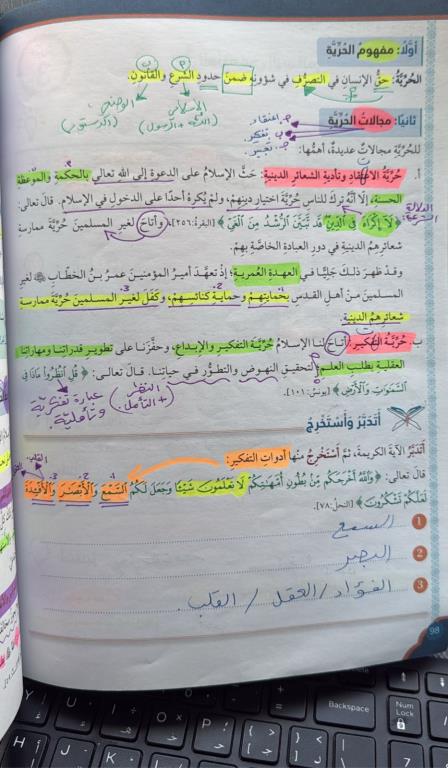 أوّلًا: مفهومُ الحُرّيَّةِ
الحُرّيَّةُ: حقُّ الإنسانِ في التصرُّفِ في شؤونِهِ ضمنَ حدودِ الشرعِ والقانونِ.
الإسلامي
(الله + الرسول)
الوضعي
(الدستور)
ثانيًا: مجالاتُ الحُرّيَّةِ
أ. اعتقاد
ب. تفكير
ج. تعبير
للحُرّيَّةِ مجالاتٌ عديدةٌ، أهمُّها:
أ. حُرّيَّةُ الاعتقادِ وتأديةِ الشعائرِ الدينيةِ: حَثَّ الإسلامُ على الدعوةِ إلى اللهِ تعالى بالحكمةِ والموْعظةِ
الحسنةِ، إلّا أنَّهُ تركَ للناسِ حُرّيَّةَ اختيارِ دينِهِمْ، ولمْ يُكرِهْ أحدًا على الدخولِ في الإسلامِ. قالَ تعالى:
الدلالة الشرعية:
﴿لَآ إِكْرَاهَ فِى ٱلدِّينِ قَد تَّبَيَّنَ ٱلرُّشْدُ مِنَ ٱلْغَىِّ﴾ [البقرة: ٢٥٦]، وأتاحَ لغيرِ المسلمينَ حُرّيَّةَ ممارسةِ
شعائرِهِمُ الدينيةِ في دورِ العبادةِ الخاصَّةِ بِهِمْ.
وقدْ ظهرَ ذلكَ جليًّا في العهدةِ العمريةِ؛ إذْ تعهَّدَ أميرُ المؤمنينَ عمرُ بنُ الخطّابِ لغيرِ
المسلمينَ منْ أهلِ القدسِ بحمايتِهِمْ وحمايةِ كنائسِهِمْ، وكفلَ لغيرِ المسلمينَ حُرّيَّةَ ممارسةِ
شعائرِهِمُ الدينيةِ.
ب. حُرّيَّةُ التفكيرِ: أتاحَ لنا الإسلامُ حُرّيَّةَ التفكيرِ والإبداعِ، وحفَّزَنا على تطويرِ قدراتِنا ومهاراتِنا
العقليةِ بطلبِ العلمِ؛ لتحقيقِ النهوضِ والتطوُّرِ في حياتِنا. قالَ تعالى: ﴿قُلِ ٱنظُرُوا۟ مَاذَا فِى
ٱلسَّمَٰوَٰتِ وَٱلْأَرْضِ﴾ [يونس: ١٠١].
النظر
+ التأمل).
عبادة تفكرية
وتأملية.
أَتَدَبَّرُ وَأَسْتَخْرِجُ
أَتَدَبَّرُ الآيةَ الكريمةَ، ثمَّ أَسْتَخْرِجُ منها أدواتِ التفكيرِ:
القلب
قالَ تعالى: ﴿وَٱللَّهُ أَخْرَجَكُم مِّنۢ بُطُونِ أُمَّهَٰتِكُمْ لَا تَعْلَمُونَ شَيْـًٔا وَجَعَلَ لَكُمُ ٱلسَّمْعَ وَٱلْأَبْصَٰرَ وَٱلْأَفْـِٔدَةَ
لَعَلَّكُمْ تَشْكُرُونَ﴾ [النحل: ٧٨].
1 السمع
2 البصر
3 الفؤاد / العقل / القلب.
98
Backspace
Num Lock
Y U I O P
H J K L